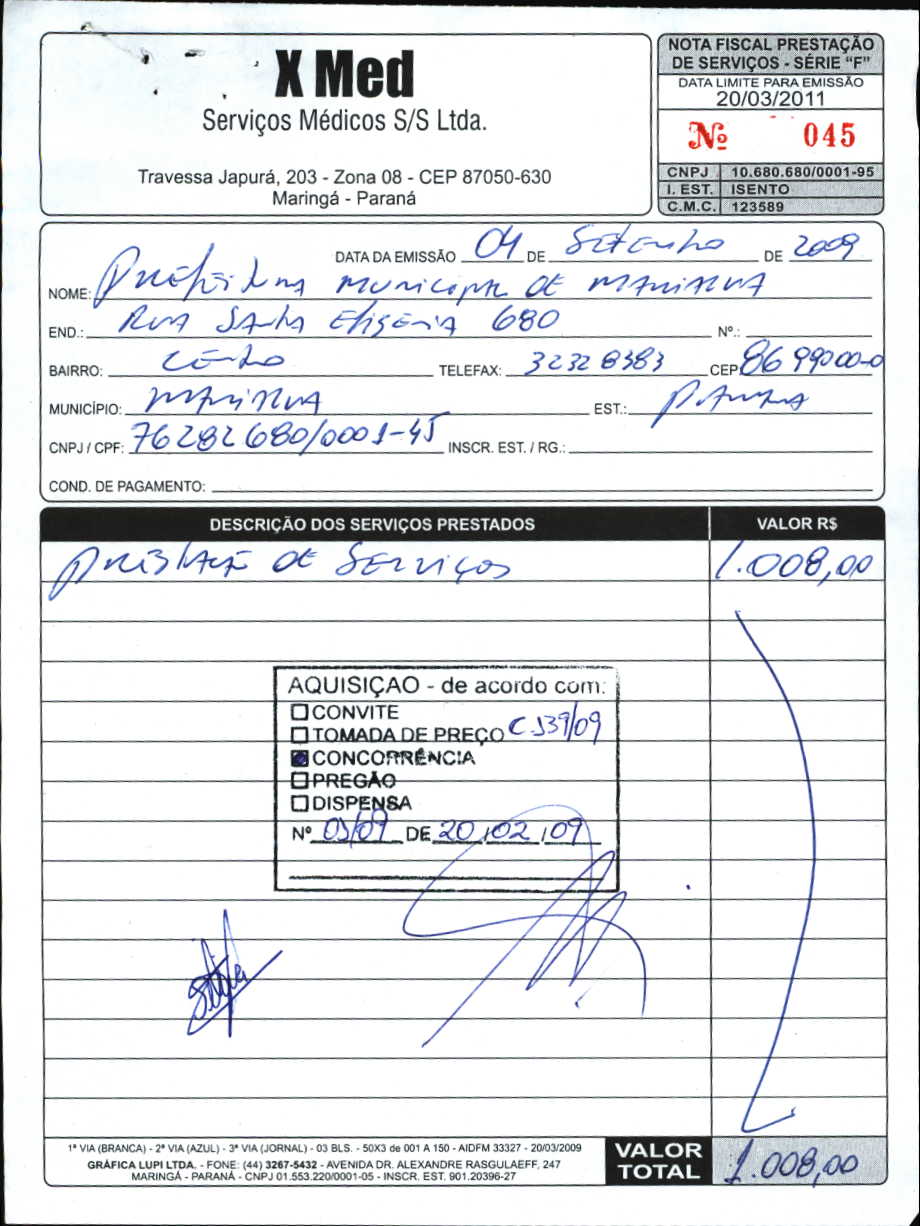 X Med
Serviços Médicos S/S Ltda.
Travessa Japurá, 203 - Zona 08 - CEP 87050-630
Maringá - Paraná
NOTA FISCAL PRESTAÇÃO
DE SERVIÇOS - SÉRIE “F”
DATA LIMITE PARA EMISSÃO
20/03/2011
Nº 045
CNPJ 10.680.680/0001-95
I. EST. ISENTO
C.M.C. 123589
DATA DA EMISSÃO 04 DE Setembro DE 2009
NOME: Prefeitura Municipal de Marialva
END.: Rua Santa Efigenia 680 Nº.:
BAIRRO: Centro TELEFAX: 32328383 CEP: 8699000-0
MUNICÍPIO: Marialva EST.: Parana
CNPJ / CPF: 76282680/0001-45 INSCR. EST. / RG.:
COND. DE PAGAMENTO:
DESCRIÇÃO DOS SERVIÇOS PRESTADOS VALOR R$
Prestação de Serviços 1.008,00
AQUISIÇAO - de acordo com:
CONVITE
TOMADA DE PREÇO C.139/09
CONCORRÊNCIA
PREGÃO
DISPENSA
Nº 03/09 DE 20/02/09
1ª VIA (BRANCA) - 2ª VIA (AZUL) - 3ª VIA (JORNAL) - 03 BLS. - 50X3 de 001 A 150 - AIDFM 33327 - 20/03/2009
GRÁFICA LUPI LTDA. - FONE: (44) 3267-5432 - AVENIDA DR. ALEXANDRE RASGULAEFF, 247
MARINGÁ - PARANÁ - CNPJ 01.553.220/0001-05 - INSCR. EST. 901.20396-27
VALOR TOTAL 1.008,00